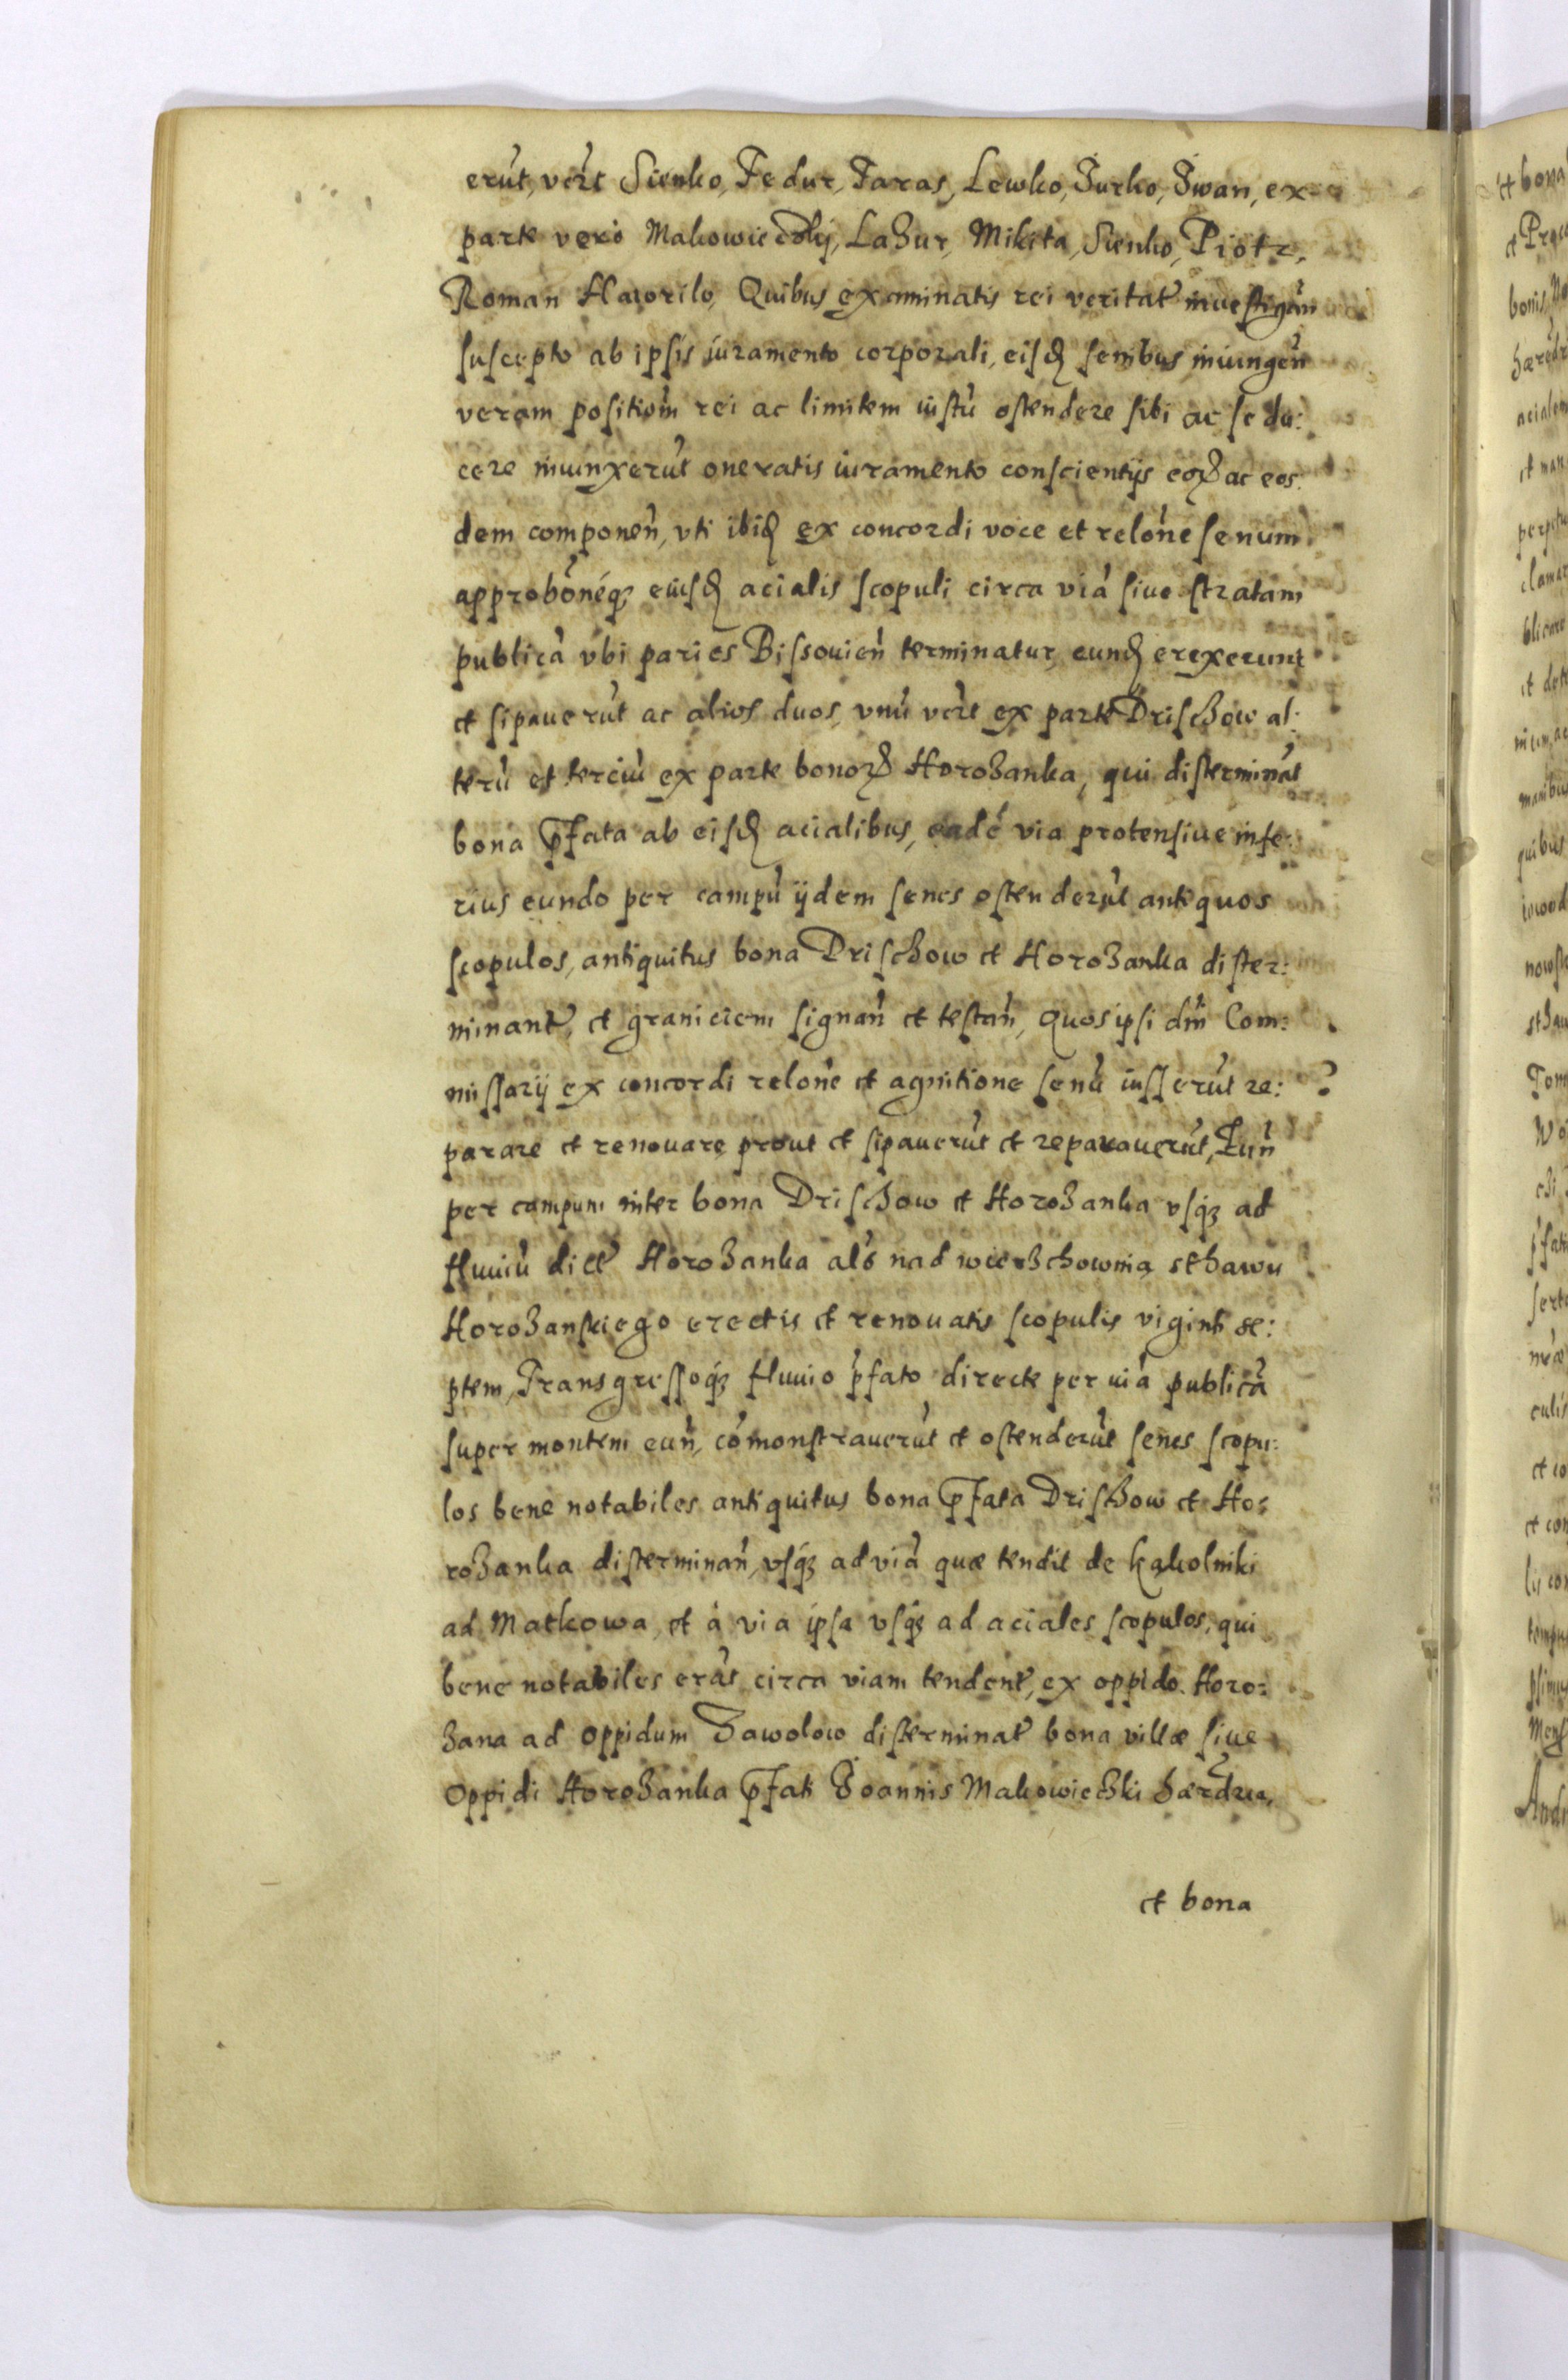 erūt, vert Sienko, Fedur, Taras, Lewko, Jurko, Iwan, ex
parte vero Makowieczky, Lazur, Mikita, Sienko, Piotr,
Roman Hawrilo, Quibus examinatis rei veritat̃ inuestigan̄
suscepto ab ipsis iuramento corporali, eisđ senibus iniungen̄
veram position̄ rei ac limitem iustū ostendere sibi ac se du:
cere iniunxerūt oneratis iuramento conscientijs eoꝝ ac eos:
dem componen̄, vti ibiđ ex concordi voce et relōne senum
approbōneq̃ꝫ eiusđ acialis scopuli circa viā siue stratam
publicā vbi paries Bissouien̄ terminatur, eunđ erexerunt
et sipauerūt ac alios duos, vnū vert ex parte Drischow al:
terū et terciū ex parte bonoꝝ Horozanka, qui distermināt
bona p̄fata ab eisđ acialibus, eadē via protensiue infe:
rius eundo per campū ijdem senes ostenderūt antiquos
scopulos, antiquitus bona Drischow et Horozanka dister:
minant̃, et graniciem signan̄ et testan̄, Quos ipsi dn̄i Com:
missarij ex concordi relōne et agnitione senū iusserūt re:
parare et renouare prout et sipauerūt et reparauerūt, Tun̄
per campum inter bona Drischow et Horozanka vsq̃ꝫ ad
fluuiū dict̃ Horozanka als nad wierzchowiną sthawu
Horozanskiego erectis et renouatis scopulis viginti se:
ptem, Transgressoq̃ꝫ fluuio p̄fato directe per uiā publicā
super montem eun̄, cōmonstrauerūt et ostenderūt senes scopu:
los bene notabiles antiquitus bona p̄fata Drischow et Ho:
rozanka disterminan̄, vsq̃ꝫ ad viā quæ tendit de Kąkolniki
ad Matkowa, et à via ipsa vsq̃ꝫ ad aciales scopulos, qui
bene notabiles erāt circa viam tendent̃, ex oppido Horo:
zana ad oppidum Zawolow disterminat̃ bona villæ siue
Oppidi Horozanka p̄fati Joannis Makowieczki
et bona